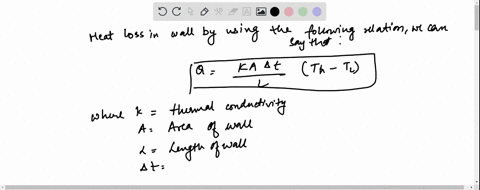 Heat loss in wall by using the following relation, we can
say that :
Q = KA Δt / L (Th - TL)
where K = thermal conductivity
A = Area of wall
L = Length of wall
Δt =